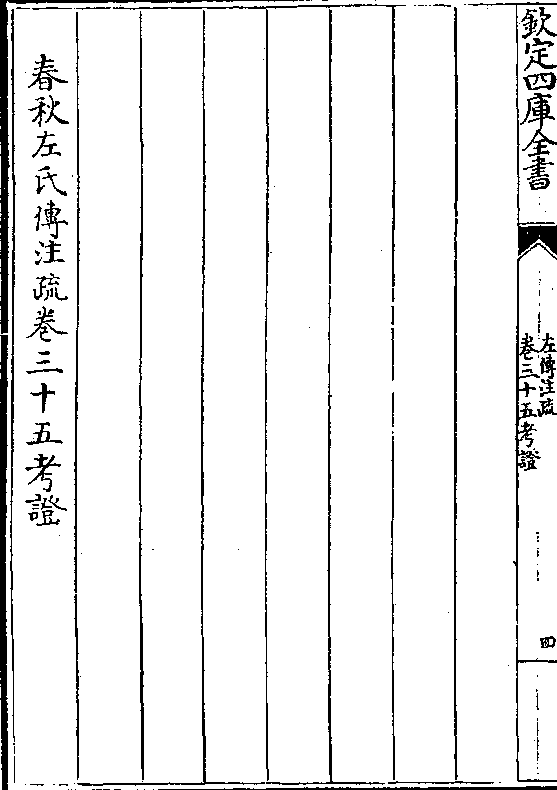 欽定四庫全書
左傳注疏
卷三十五考證
四
春秋左氏傳注疏卷三十五考證